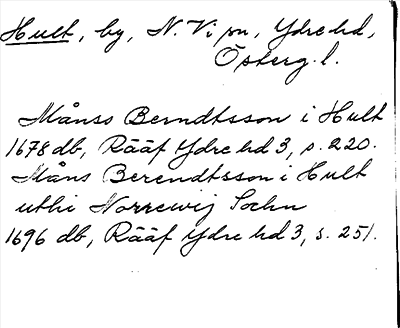 Hult, by, N. Vi sn, Ydre hd,
Östergl.
Månss Berndtsson i Hult
1678 db, Rääf Ydre hd 3, s. 220.
Måns Berendtsson i Hult
uthi Norrewij Sochn
1696 db, Rääf Ydre hd 3, s. 251.